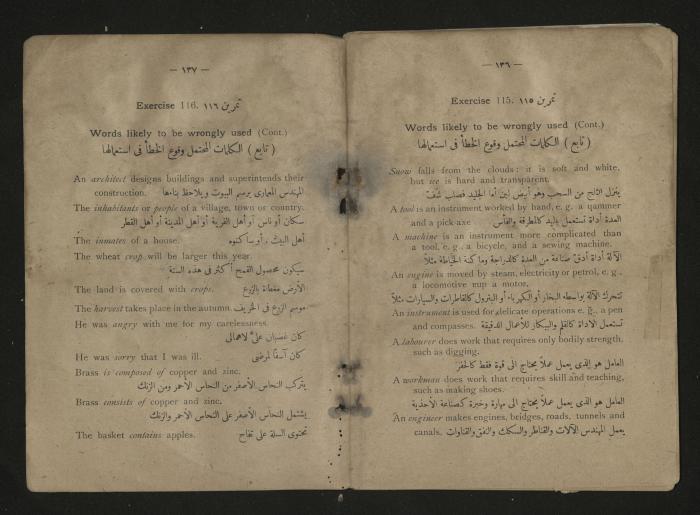 — ١٣٦ —
Exercise 115. تمرين ١١٥
Words likely to be wrongly used (Cont.)
( تابع ) الكلمات المحتمل وقوع الخطأ فى استعمالها
Snow falls from the clouds: it is soft and white,
but ice is hard and transparent.
ينزل الثلج من السحب وهو أبيض لين أما الجليد فصلب شفّف
A tool is an instrument worked by hand, e. g. a qammer
and a pick-axe العدة أداة تستعمل باليد كالمطرقة والفأس
A machine is an instrument more complicated than
a tool, e. g., a bicycle, and a sewing machine.
الآلة أداة أدقّ صناعة من العدة كالدراجة وما كنة الخياطة مثلاً
An engine is moved by steam, electricity or petrol, e. g.,
a locomotive eup a motor.
تتحرك الآلة بواسطه البخار أو الكهرباء أو البترول كالقاطرات والسيارات مثلاً
An instrument is used for delicate operations e. g., a pen
and compasses. تستعمل الأداة كالقلم والبيكار للأعمال الدقيقة
A labourer does work that requires only bodily strength,
such as digging.
العامل هو الذى يعمل عملاً يحتاج الى قوة فقط كالحفر
A workman does work that requires skill and teaching,
such as making shoes.
العامل هو الذى يعمل عملاً يحتاج الى مهارة وخبرة كصناعة الأحذية
An engineer makes engines, bridges, roads, tunnels and
canals. يعمل المهندس الآلات والقناطر والسكك والنفق والقناوات
— ١٣٧ —
Exercise 116. تمرين ١١٦
Words likely to be wrongly used (Cont.)
( تابع ) الكلمات المحتمل وقوع الخطأ فى استعمالها
An architect designs buildings and superintends their
construction. المهندس المعارى يرسم البيوت ويلاحظ بناءها
The inhabitants or people of a village, town or country.
سكان أو ناس أو أهل القرية أو أهل المدينة أو أهل القطر
The inmates of a house. أهل البيت ، أو ساكنوه
The wheat crop will be larger this year.
سيكون محصول القمح أكثر فى هذه السنة
The land is covered with crops. الأرض مغطاة بالزرع
The harvest takes place in the autumn. موسم الزرع فى الخريف
He was angry with me for my carelessness.
كان غضبان علىّ لاهمالى
He was sorry that I was ill. كان آسفا لمرضى
Brass is composed of copper and zinc.
يتركب النحاس الأصفر من النحاس الأحمر ومن الزنك
Brass consists of copper and zinc.
يشتمل النحاس الأصفر على النحاس الأحمر والزنك
The basket contains apples. تحتوى السلة على تفاح